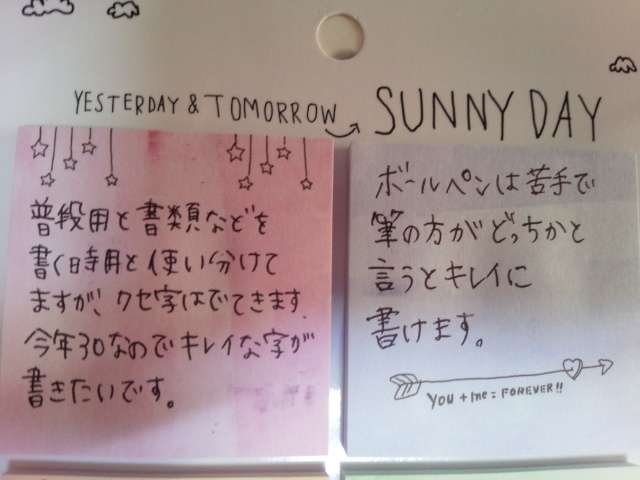 YESTERDAY & TOMORROW
SUNNY DAY
普段用と書類などを
書く時用と使い分けて
ますが、クセ字はでてきます.
今年30なのでキレイな字が
書きたいです。
ボールペンは苦手で
筆の方がどっちかと
言うとキレイに
書けます。
YOU + me = FOREVER!!